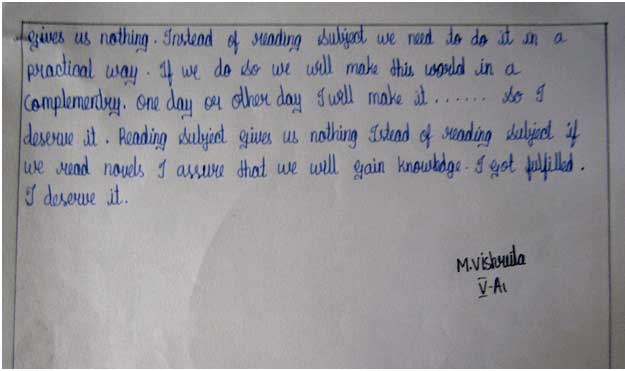 gives us nothing. Instead of reading subject we need to do it in a
practical way. If we do so we will make this world in a
complementry. One day or other day I will make it ...... so I
deserve it. Reading subject gives us nothing Istead of reading subject if
we read novels I assure that we will gain knowledge. I got fulfilled.
I deserve it.
M.Vishruta
V-A1